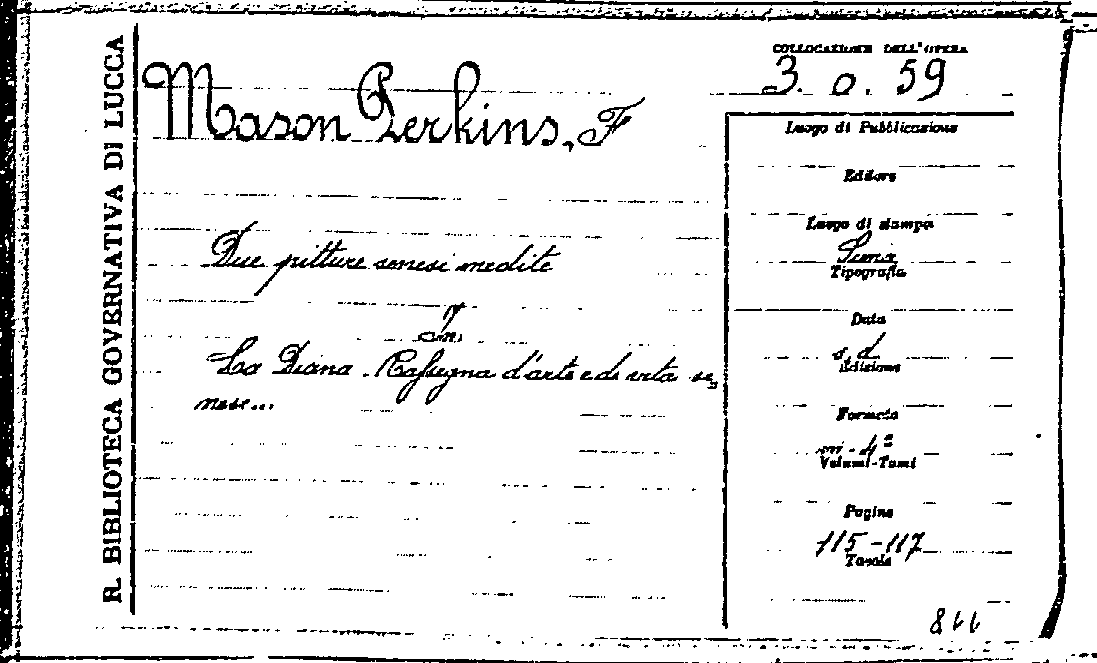 R. BIBLIOTECA GOVERNATIVA DI LUCCA
Mason Perkins, F
Due pitture senesi inedite
In
La Diana. Rassegna d'arte e di vita se,
nese...
COLLOCAZIONE DELL'OPERA
3. a. 59
Luogo di Pubblicazione
Editore
Luogo di stampa
Siena
Tipografia
Data
s. d
Edizione
Formato
in-4º
Volumi-Tomi
Pagine
115-117
Tavole